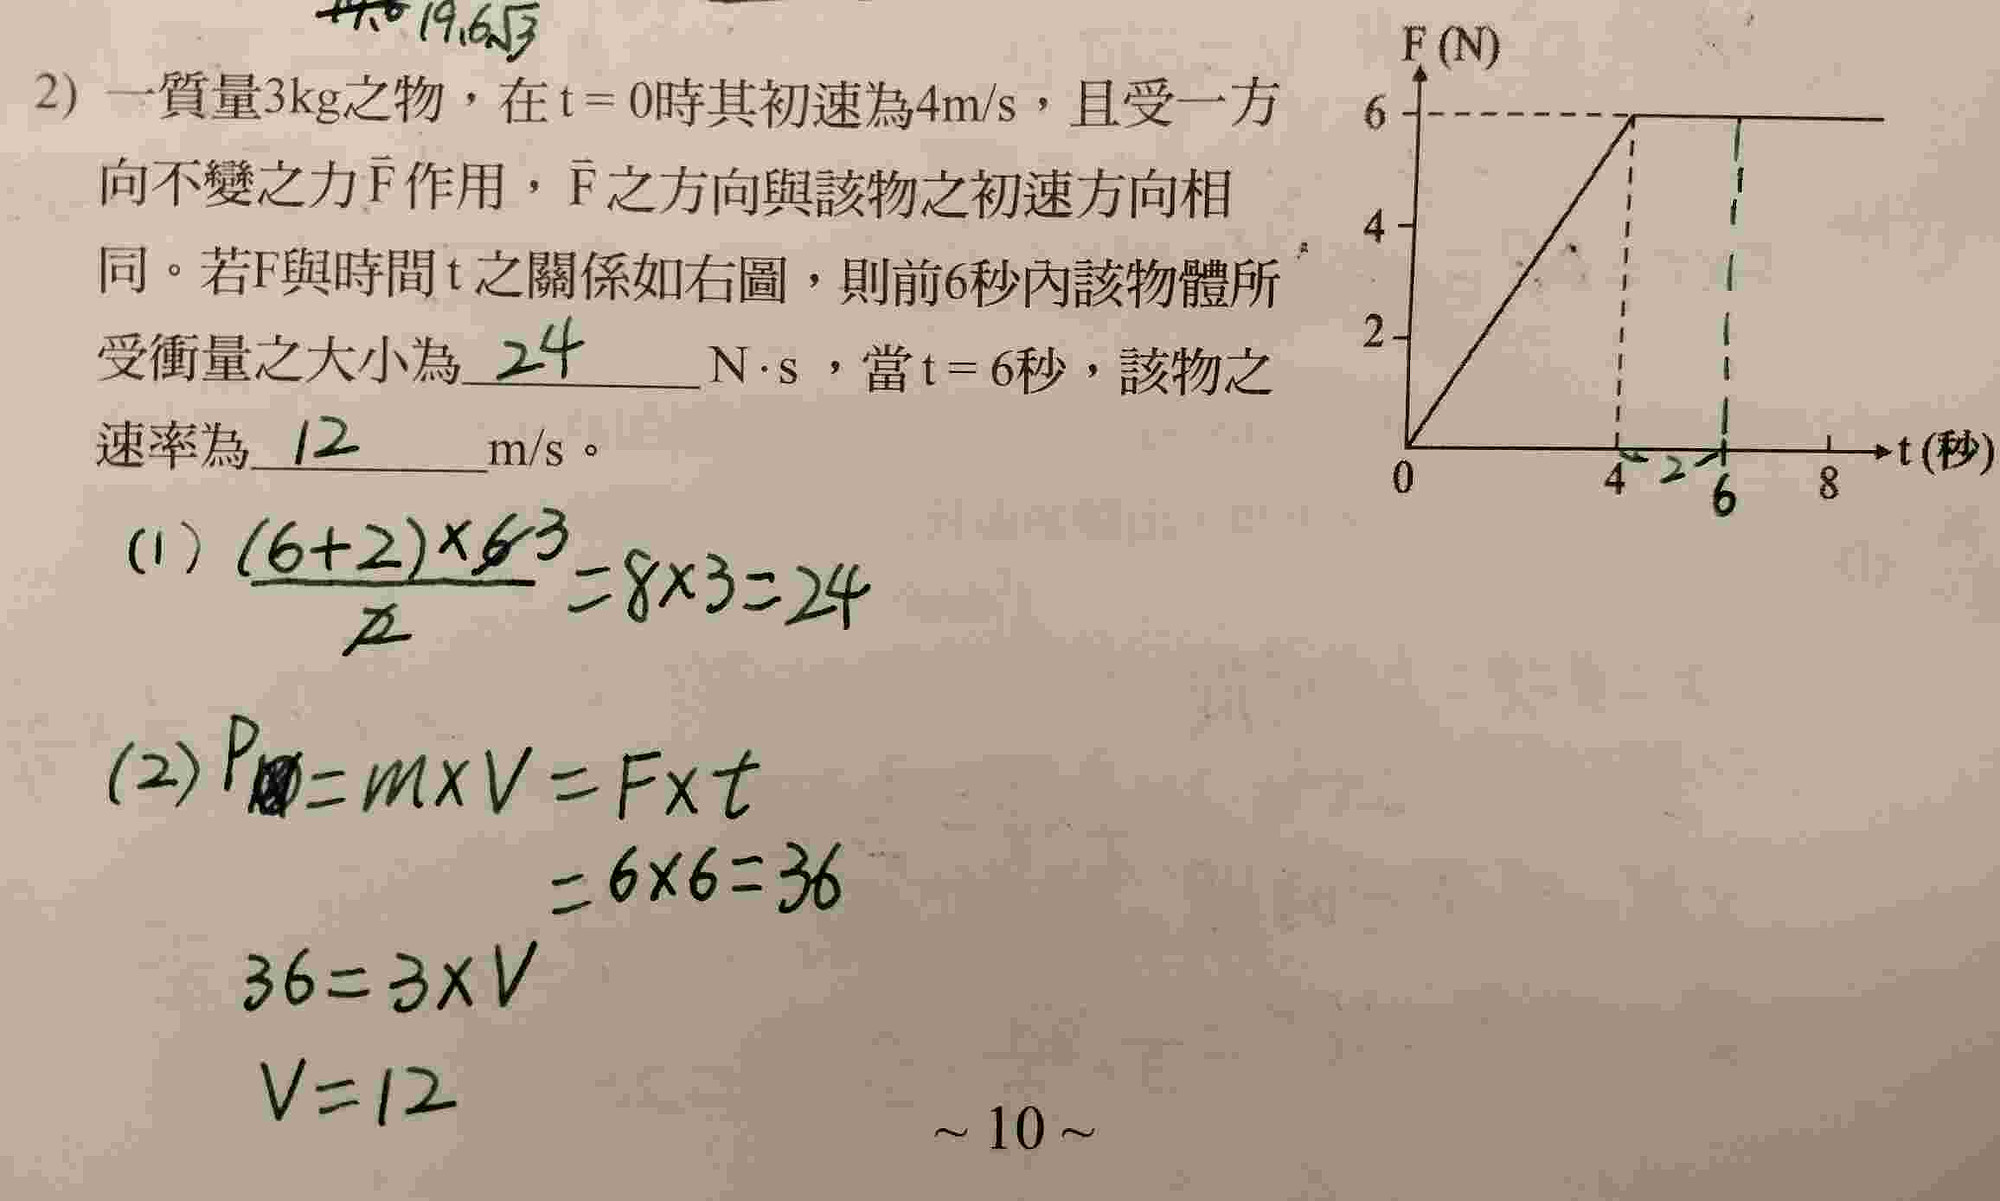 19.6√3
2) 一質量3kg之物，在t=0時其初速為4m/s，且受一方
向不變之力F̄作用，F̄之方向與該物之初速方向相
同。若F與時間t之關係如右圖，則前6秒內該物體所
受衝量之大小為 24 N·s，當t=6秒，該物之
速率為 12 m/s。
F (N)
6
4
2
0
4
2
6
8
t (秒)
(1) (6+2)×6 3
2
=8×3=24
(2) P=m×V=F×t
=6×6=36
36=3×V
V=12
~10~